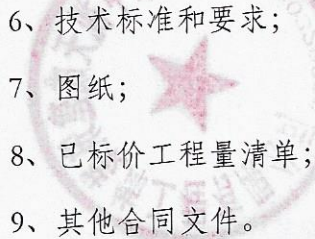 6、技术标准和要求；
7、图纸；
8、已标价工程量清单；
9、其他合同文件。